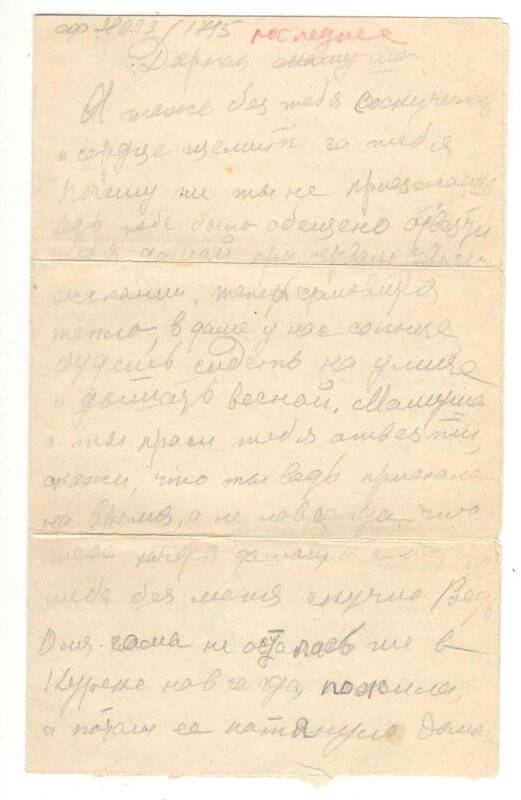 оф 28893/1745 последнее
Дорогая мамуша
Я тоже без тебя соскучилась
и сердце щемит за тебя
почему ты не приезжаешь
ведь тебе было обещено отвезти
тебя домой при первом твоем
желании, теперь становится
тепло, в доме у нас солнце
будешь сидеть на улице
и дышать весной, Мамуша
а ты проси тебя отвезти,
скажи, что ты ведь приехала
на время, а не навсегда, что
тебе домой
тебе без меня скучно Ведь
Оля сама не осталась же в
Курске навсегда, пожила,
а потом ее потянуло домой